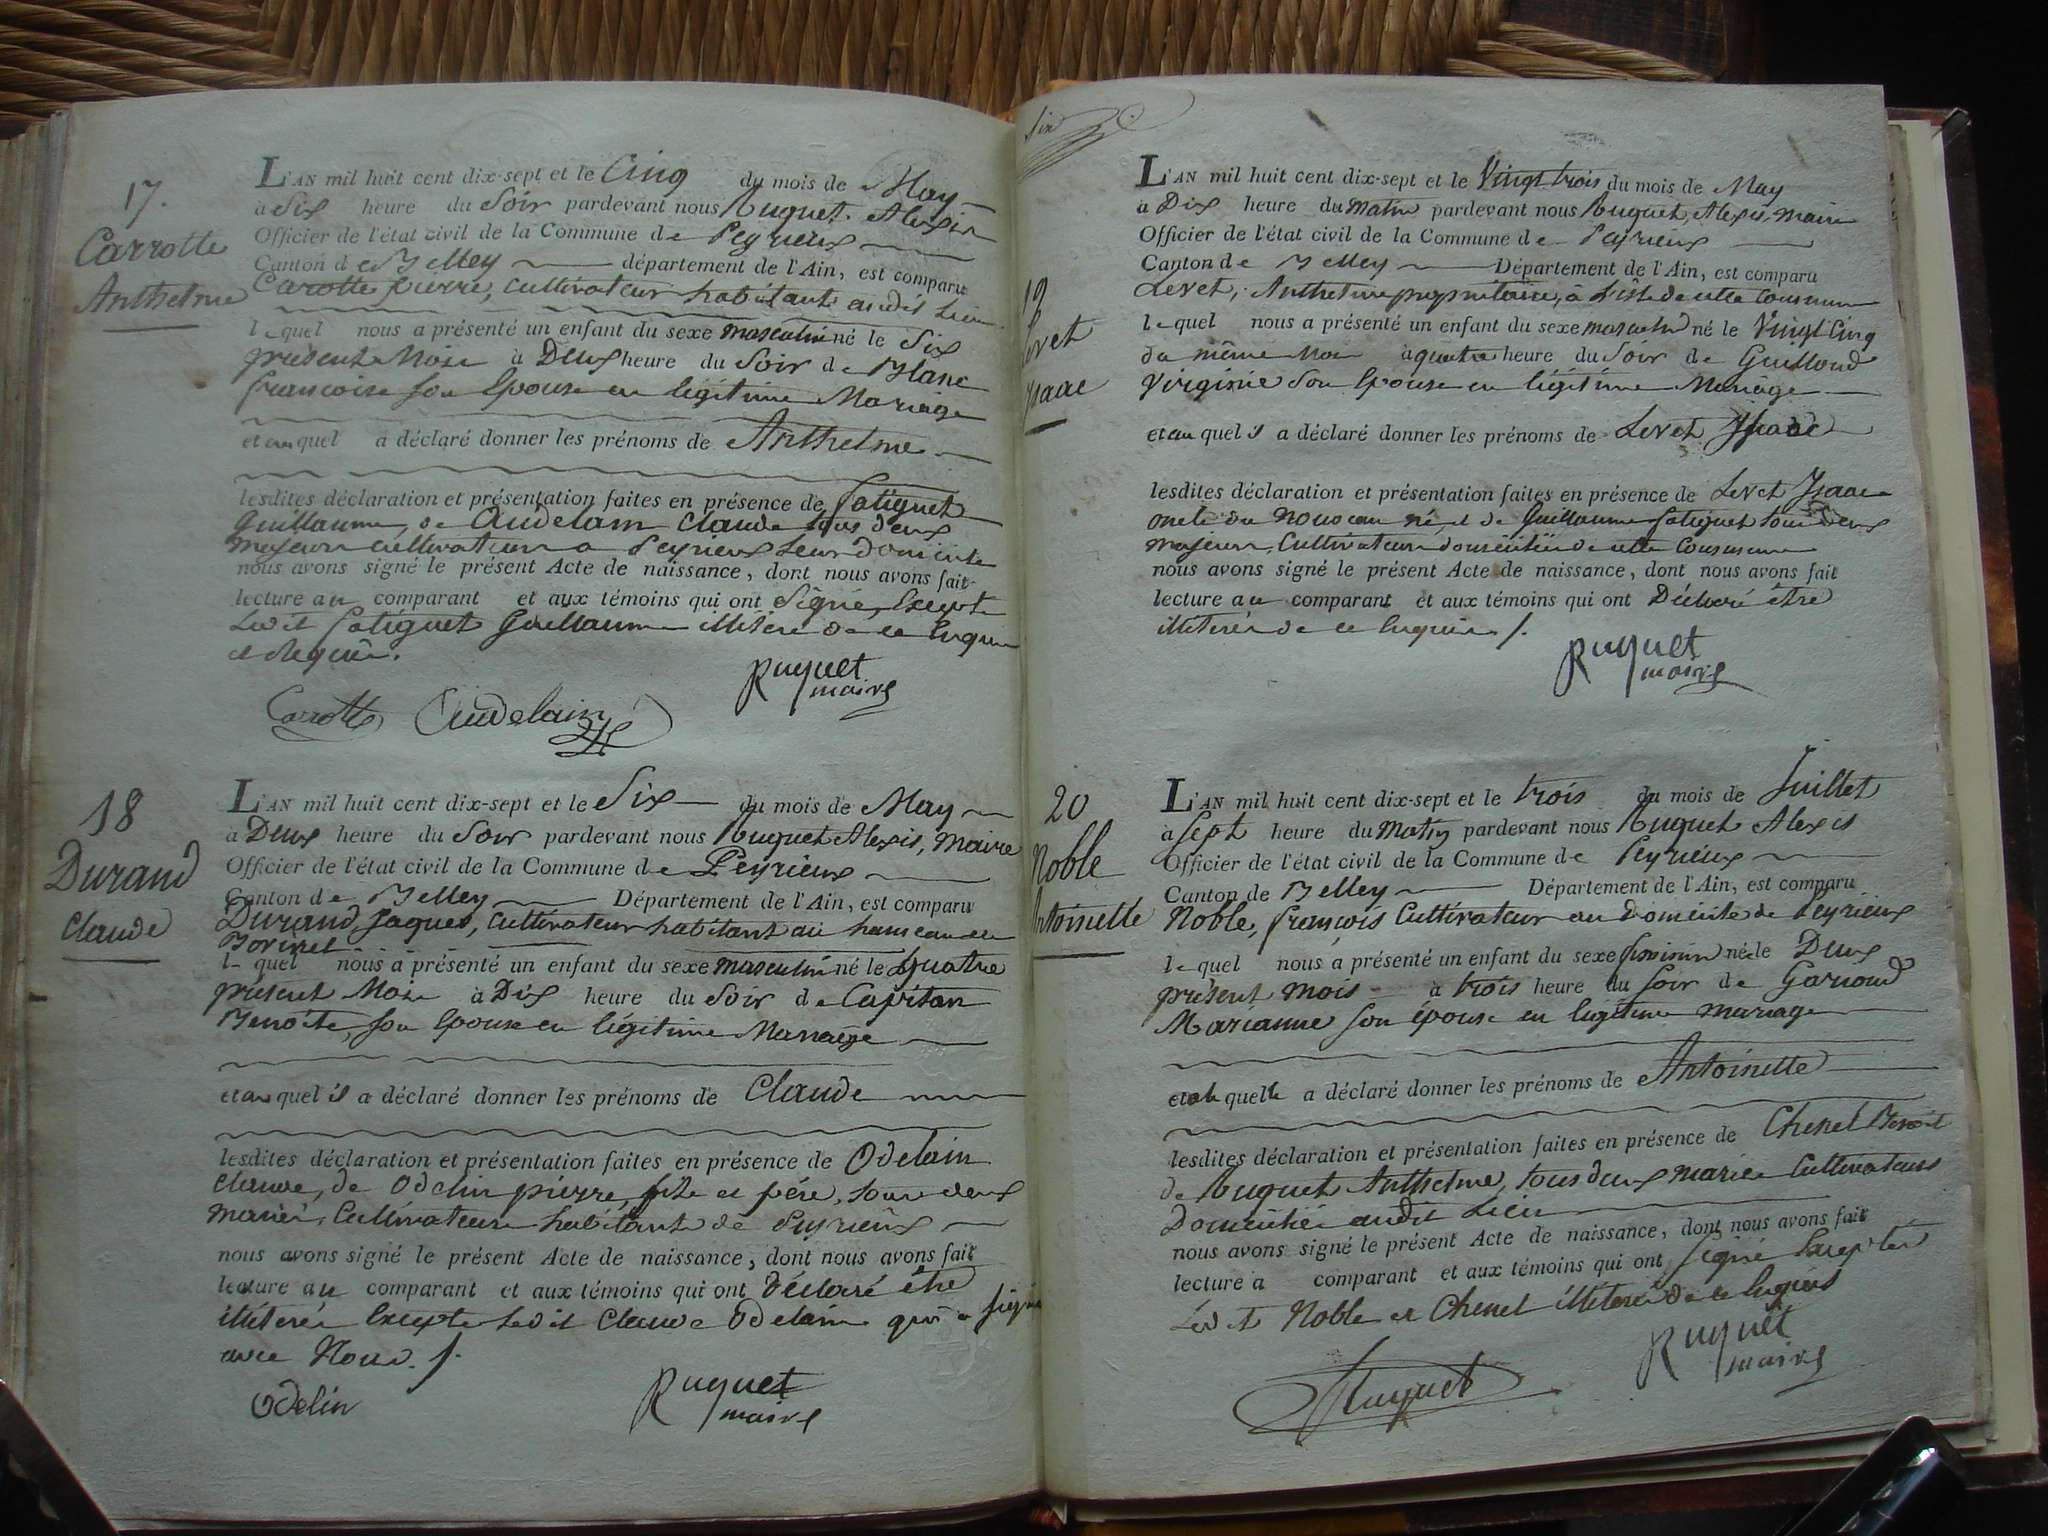 17.
Carrotte
Anthelme
L'AN mil huit cent dix-sept et le Cinq du mois de May
à Six heure du Soir pardevant nous Ruguet Alexis
Officier de l'état civil de la Commune de Peyrieux
Canton de Belley département de l'Ain, est comparu
Carotte pierre, cultivateur habitant audit Lieu
lequel nous a présenté un enfant du sexe masculin né le Six
présent Mois à Deux heure du Soir de Blanc
francoise son Epouse en legitime Mariage
et au quel a déclaré donner les prénoms de Anthelme
lesdites déclaration et présentation faites en présence de Satiguet
Guillaume, de Audelain Claude tous deux
majeurs cultivateurs a Peyrieux Leur domicile
nous avons signé le présent Acte de naissance, dont nous avons fait
lecture au comparant et aux témoins qui ont Signé, Excepte
Ledit Satiguet Guillaume illiteré de ce Enquis
et Requis.
Ruguet
maire
Carrotte Audelain
18
Durand
Claude
L'AN mil huit cent dix-sept et le Six du mois de May
à Deux heure du Soir pardevant nous Ruguet Alexis, maire
Officier de l'état civil de la Commune de Peyrieux
Canton de Belley Département de l'Ain, est comparu
Durand Jaques, Cultivateur habitant au hameau de
lequel nous a présenté un enfant du sexe masculin né le Quatre
présent Mois à Dix heure du Soir de Capitan
Benoite, son Epouse en légitime Mariage
et au quel il a déclaré donner les prénoms de Claude
lesdites déclaration et présentation faites en présence de Odelain
Claude, de Odelin pierre, fils et pére, tous deux
mariés, Cultivateurs habitants de Peyrieux
nous avons signé le présent Acte de naissance, dont nous avons fait
lecture au comparant et aux témoins qui ont Déclaré être
illiterés Excepte Ledit Claude Odelain qui a signé
avec Nous.
Odelin
Ruguet
maire
Six
19
Levet
Isaac
L'AN mil huit cent dix-sept et le Vingt trois du mois de May
à Dix heure du Matin pardevant nous Ruguet, Alexis, maire
Officier de l'état civil de la Commune de Peyrieux
Canton de Belley Département de l'Ain, est comparu
Levet, Anthelme propriétaire, à L'isle de cette Commune
lequel nous a présenté un enfant du sexe masculin né le Vingt Cinq
du même Mois à quatre heure du Soir de Guilloud
Virginie Son Epouse en légitime Mariage
et au quel il a déclaré donner les prénoms de Levet Isaac
lesdites déclaration et présentation faites en présence de Levet Isaac
oncle du Nouveau né et de Guillaume Satiguet tous deux
majeurs, Cultivateurs domiciliés de cette Commune
nous avons signé le présent Acte de naissance, dont nous avons fait
lecture au comparant et aux témoins qui ont Déclaré être
illiterés de ce Enquis
Ruguet
maire
20
Noble
Antoinette
L'AN mil huit cent dix-sept et le trois du mois de Juillet
à Sept heure du Matin pardevant nous Ruguet Alexis
Officier de l'état civil de la Commune de Peyrieux
Canton de Belley Département de l'Ain, est comparu
Noble, françois Cultivateur au domicile de Peyrieux
lequel nous a présenté un enfant du sexe feminin né le Deux
présent mois à trois heure du Soir de Garioud
Marianne son épouse en légitime mariage
et à la quelle a déclaré donner les prénoms de Antoinette
lesdites déclaration et présentation faites en présence de Chenel Benoit
de Ruguet Anthelme, tous deux mariés Cultivateurs
Domiciliés audit Lieu
nous avons signé le présent Acte de naissance, dont nous avons fait
lecture a comparant et aux témoins qui ont signé Exceptés
Ledit Noble et Chenel illiterés de ce Enquis
Ruguet
maire
Ruguet